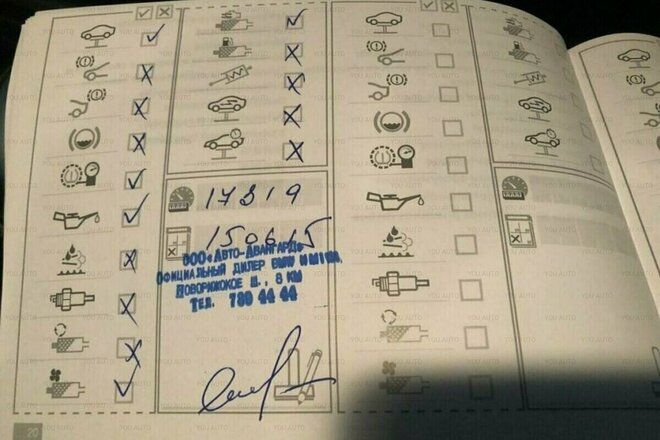 17819
150615
ООО «Авто-Авангард»
Официальный дилер BMW и MINI
Новорижское ш., 8 км
Тел. 780 44 44
20
YOU AUTO